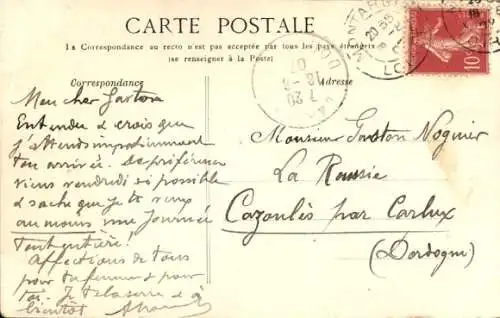 CARTE POSTALE
La Correspondance au recto n'est pas acceptée par tous les pays étrangers
(se renseigner à la Poste)
Correspondance
Adresse
MONTARG
10
7 20
Mon cher Gaston
Entendu & crois que
j'attends impatiemment
ton arrivée. De préférence
viens vendredi si possible
& sache que je te veux
au moins une journée
tout entière!
Affections de tous
pour ta femme & pour
toi. Je te la serre & à
bientôt
Monsieur Gaston Nogvier
La Roussie
Cazoulès par Carlux
(Dordogne)